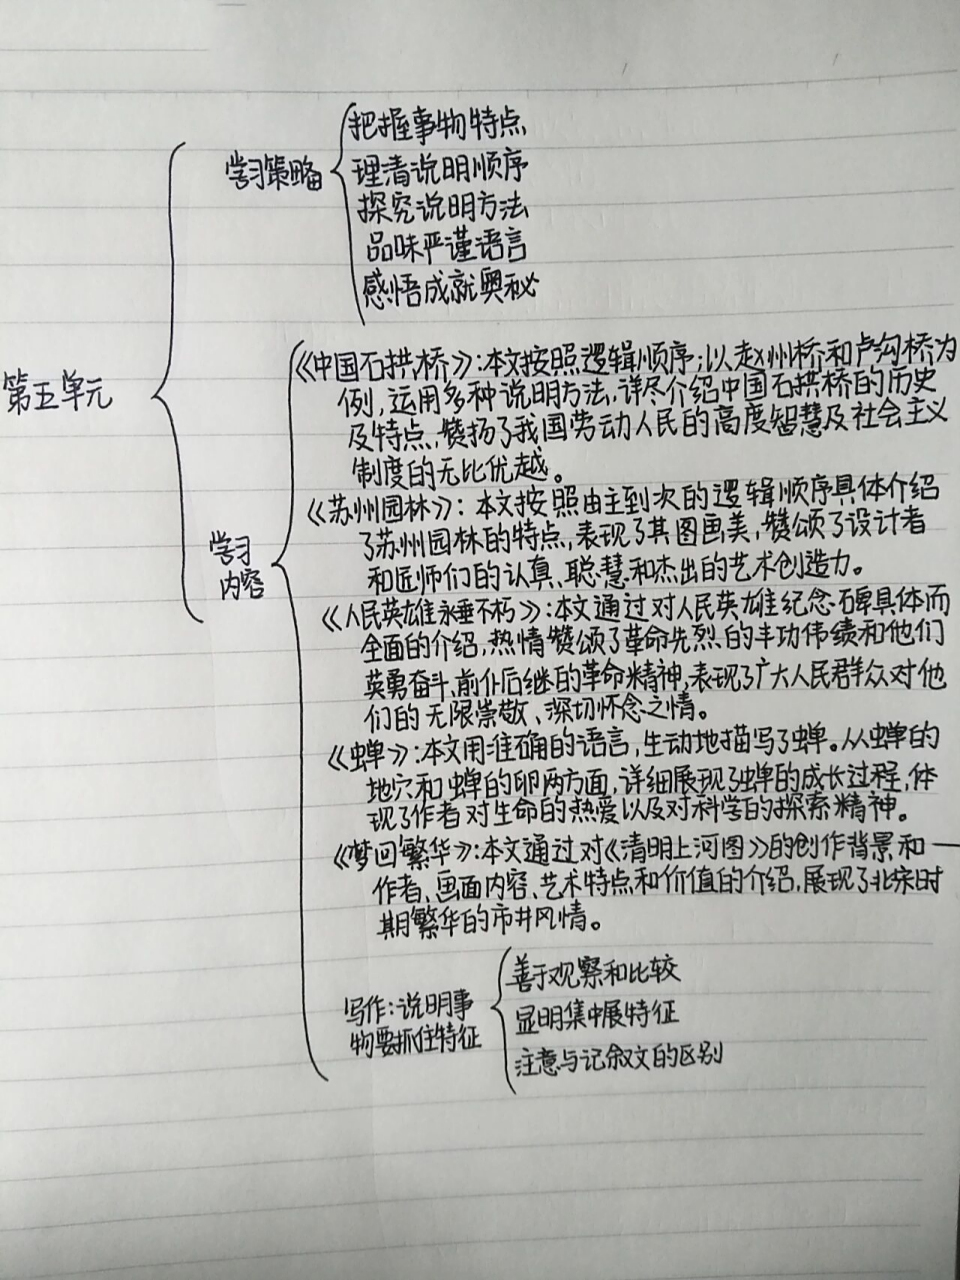 第五单元
学习策略
把握事物特点
理清说明顺序
探究说明方法
品味严谨语言
感悟成就奥秘
学习
内容
《中国石拱桥》:本文按照逻辑顺序,以赵州桥和卢沟桥为
例,运用多种说明方法,详尽介绍中国石拱桥的历史
及特点,赞扬了我国劳动人民的高度智慧及社会主义
制度的无比优越。
《苏州园林》:本文按照由主到次的逻辑顺序具体介绍
了苏州园林的特点,表现了其图画美,赞颂了设计者
和匠师们的认真、聪慧和杰出的艺术创造力。
《人民英雄永垂不朽》:本文通过对人民英雄纪念碑具体而
全面的介绍,热情赞颂了革命先烈的丰功伟绩和他们
英勇奋斗、前仆后继的革命精神,表现了广大人民群众对他
们的无限崇敬、深切怀念之情。
《蝉》:本文用准确的语言,生动地描写了蝉。从蝉的
地穴和蝉的卵两方面,详细展现了蝉的成长过程,体
现了作者对生命的热爱以及对科学的探索精神。
《梦回繁华》:本文通过对《清明上河图》的创作背景和一
作者、画面内容、艺术特点和价值的介绍,展现了北宋时
期繁华的市井风情。
写作:说明事
物要抓住特征
善于观察和比较
显明集中展特征
注意与记叙文的区别